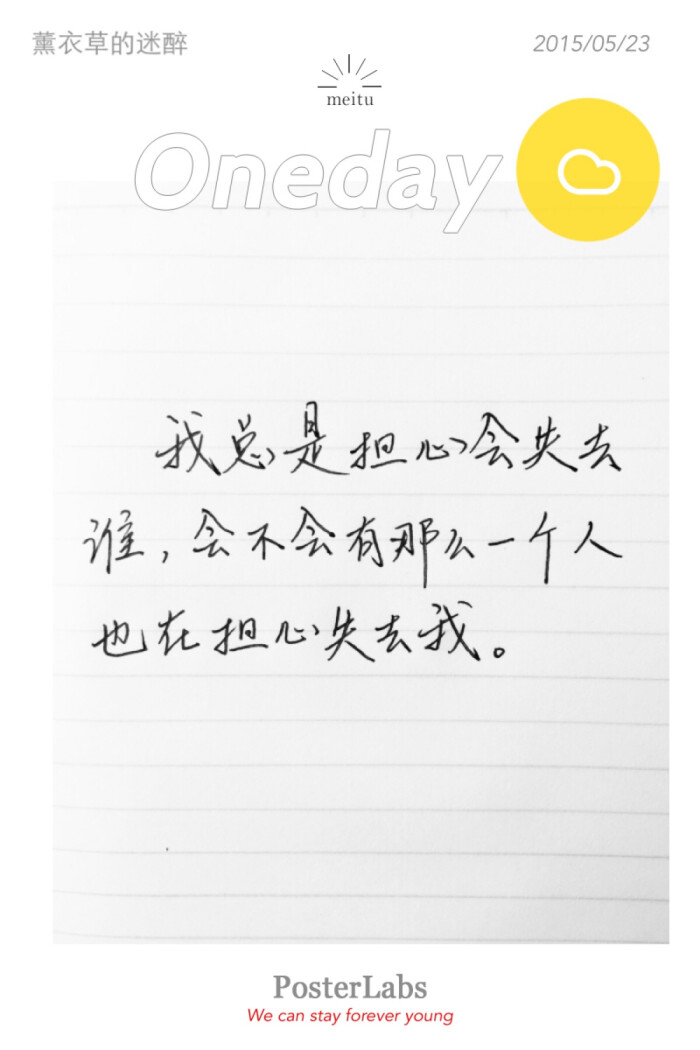 薰衣草的迷醉
2015/05/23
meitu
Oneday
我总是担心会失去
谁，会不会有那么一个人
也在担心失去我。
PosterLabs
We can stay forever young